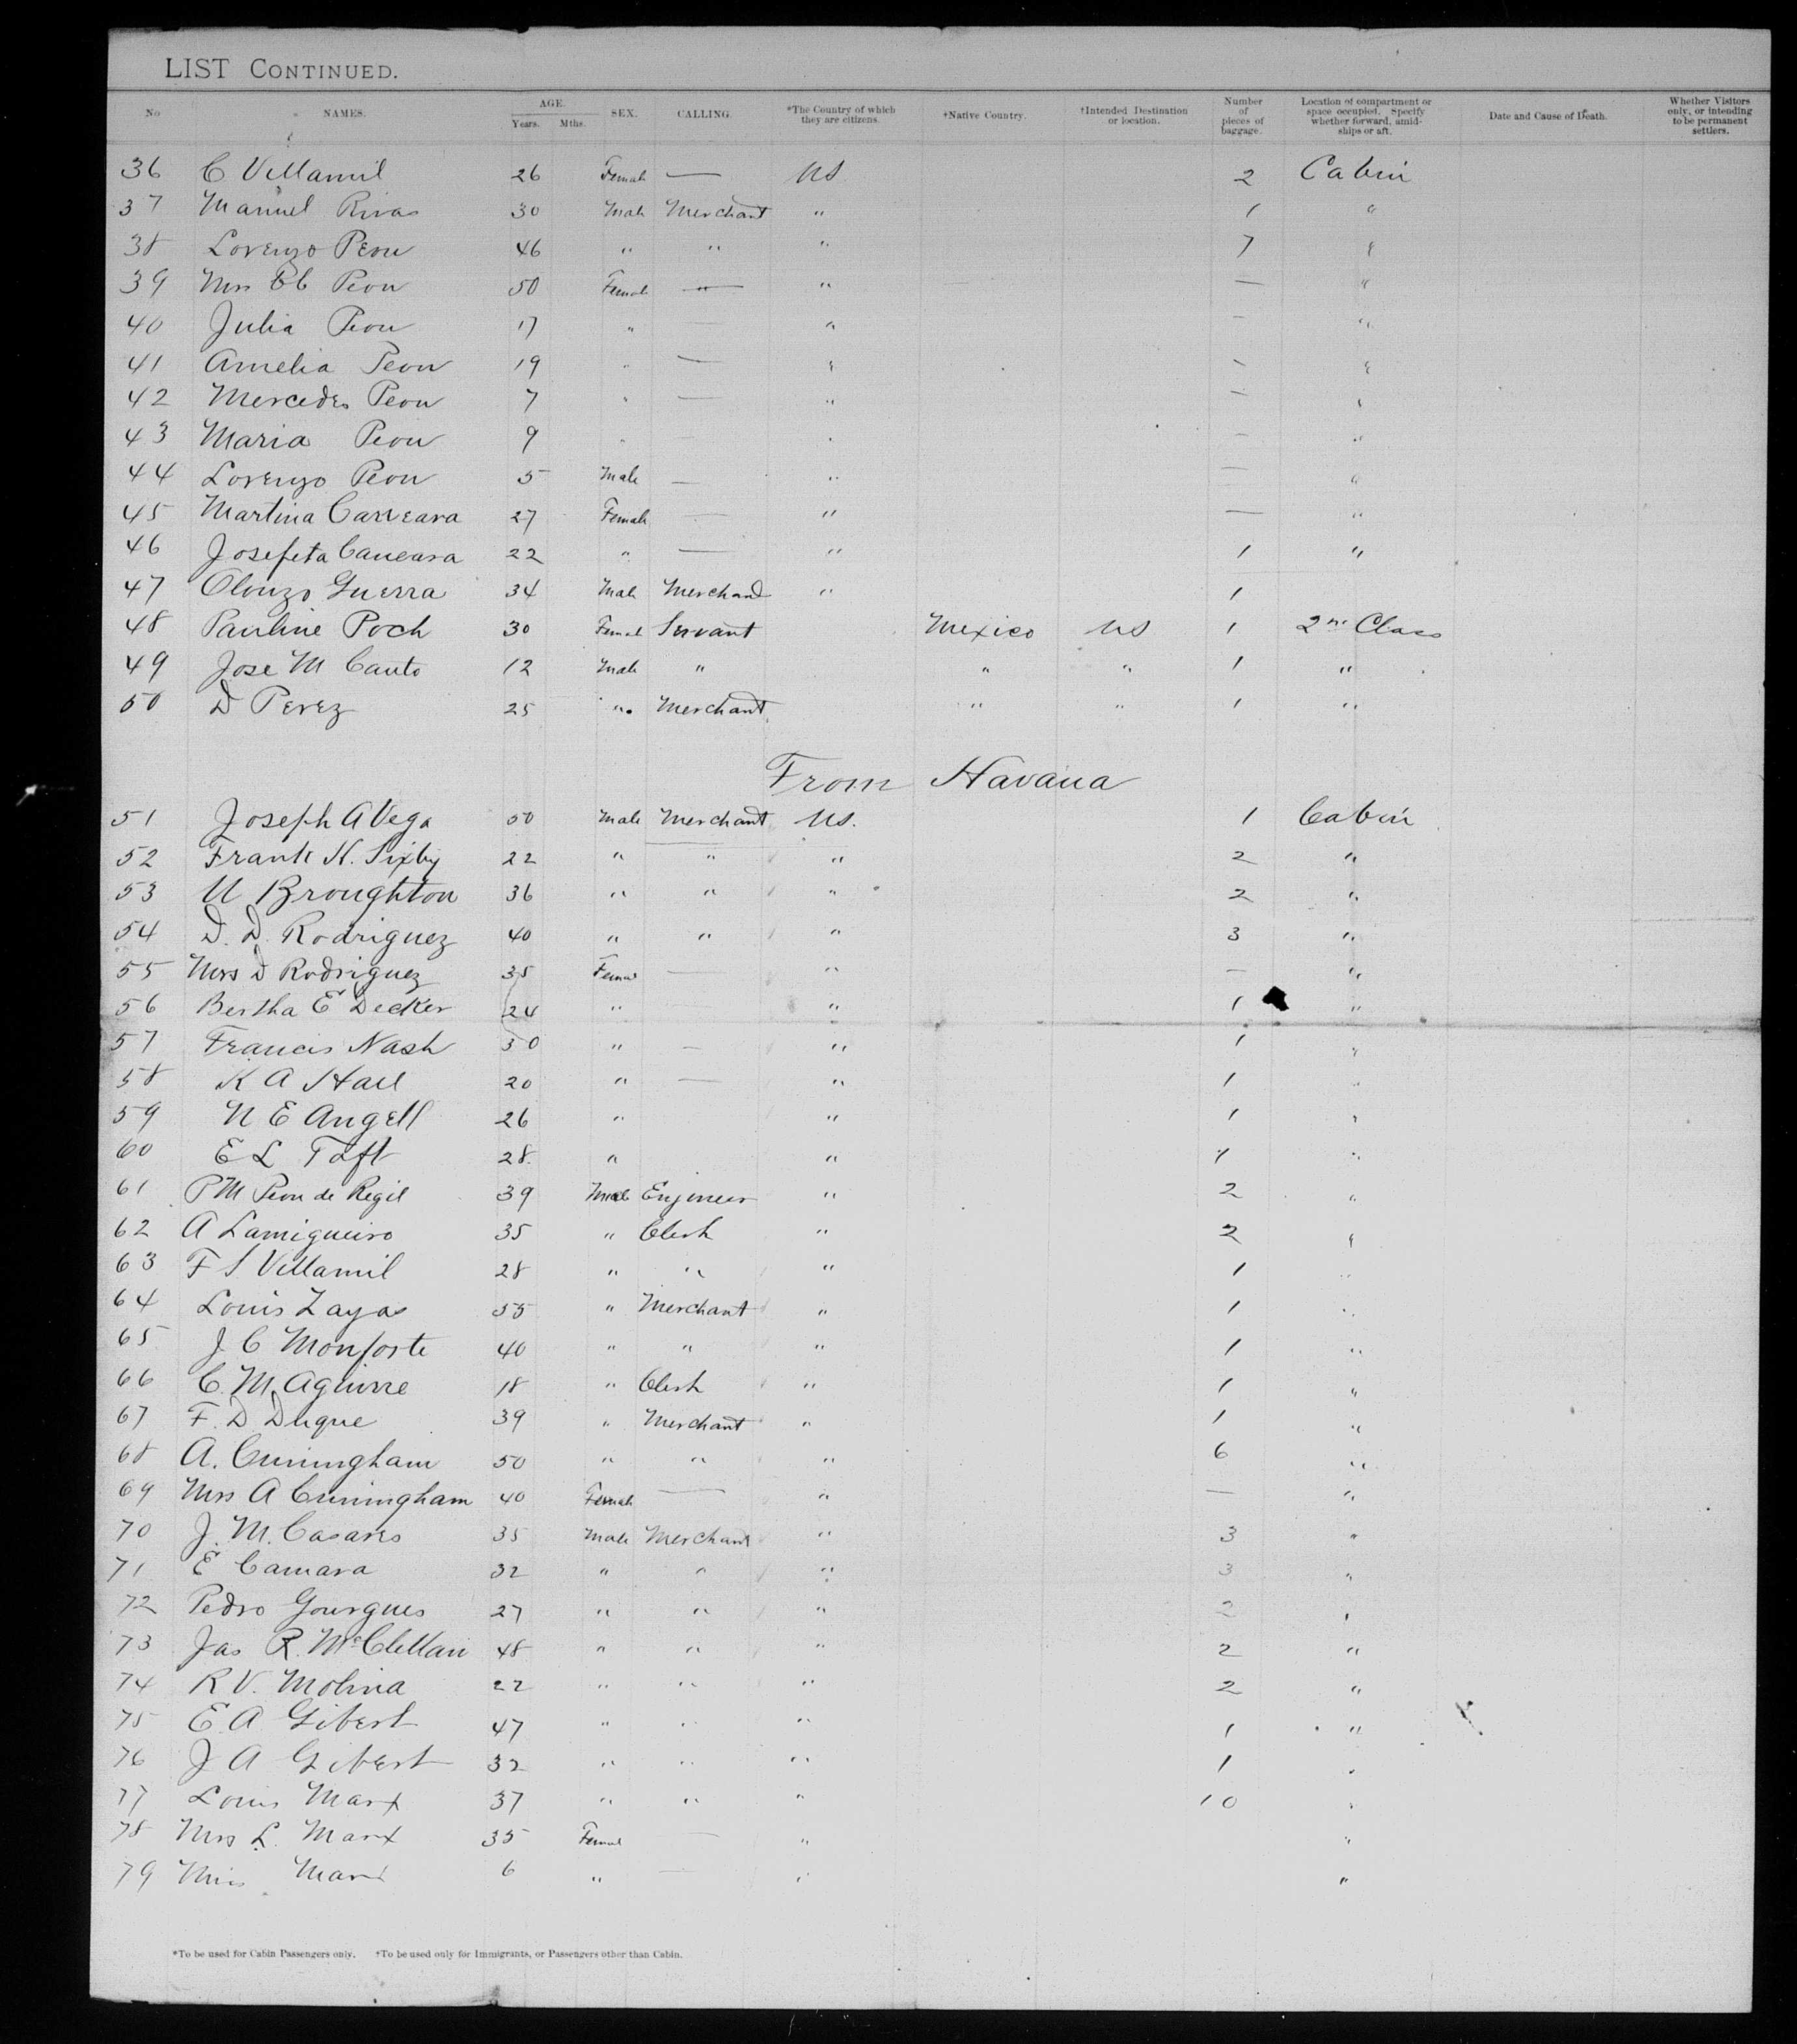 LIST CONTINUED.
No NAMES. AGE. Years. Mths. SEX. CALLING. *The Country of which they are citizens. †Native Country. †Intended Destination or location. Number of pieces of baggage. Location of compartment or space occupied. Specify whether forward, amidships or aft. Date and Cause of Death. Whether Visitors only, or intending to be permanent settlers.
36 C Villamil 26 Female — US 2 Cabin
37 Manuel Rivas 30 Male Merchant " 1 "
38 Lorenzo Peon 46 " " " 7 "
39 Mrs Peon 50 Female — " — "
40 Julia Peon 17 " — " — "
41 Amelia Peon 19 " — " — "
42 Mercedes Peon 7 " — " — "
43 Maria Peon 9 " " — "
44 Lorenzo Peon 5 Male — " — "
45 Martina 27 Female — " — "
46 Josefeta 22 " — " 1 "
47 Olonzo Guerra 34 Male Merchand " 1
48 Pauline Poch 30 Female Servant Mexico US 1 2nd Class
49 Jose M Canto 12 Male " " " 1 "
50 D Perez 25 " Merchant " " 1 "
From Havana
51 Joseph A Vega 50 Male Merchant US. 1 Cabin
52 Frank H. Sixby 22 " " " 2 "
53 U Broughton 36 " " " 2 "
54 D. D. Rodriguez 40 " " " 3 "
55 Mrs D Rodriguez 35 Female — " — "
56 Bertha E Decker 24 " — " 1 "
57 Francis Nash 30 " — " 1 "
58 K A Hall 20 " — " 1 "
59 N E Angell 26 " " 1 "
60 E L Taft 28 " " 1 "
61 P M Peon de Regil 39 Male Engineer " 2 "
62 A Lamigueiro 35 " Clerk " 2 "
63 F S Villamil 28 " " " 1 "
64 Louis Zayas " Merchant " 1 "
65 J C Monforte 40 " " " 1 "
66 C. M. Aguirre 18 " Clerk " 1 "
67 F. D Duque 39 " Merchant " 1 "
68 A. Cuningham 50 " " " 6 "
69 Mrs A Cuningham 40 Female — " — "
70 J. M. Casares 35 Male Merchant " 3 "
71 E Camara 32 " " " 3 "
72 Pedro Gourgues 27 " " " 2 "
73 Jas R. McClellan 48 " " " 2 "
74 R V. Molina 22 " " " 2 "
75 E. A Gibert 47 " " " 1 "
76 J A Gibert 32 " " " 1 "
77 Louis Marx 37 " " " 10 "
78 Mrs L. Marx 35 Female — " "
79 Miss Marx 6 " — " "
*To be used for Cabin Passengers only. †To be used only for Immigrants, or Passengers other than Cabin.